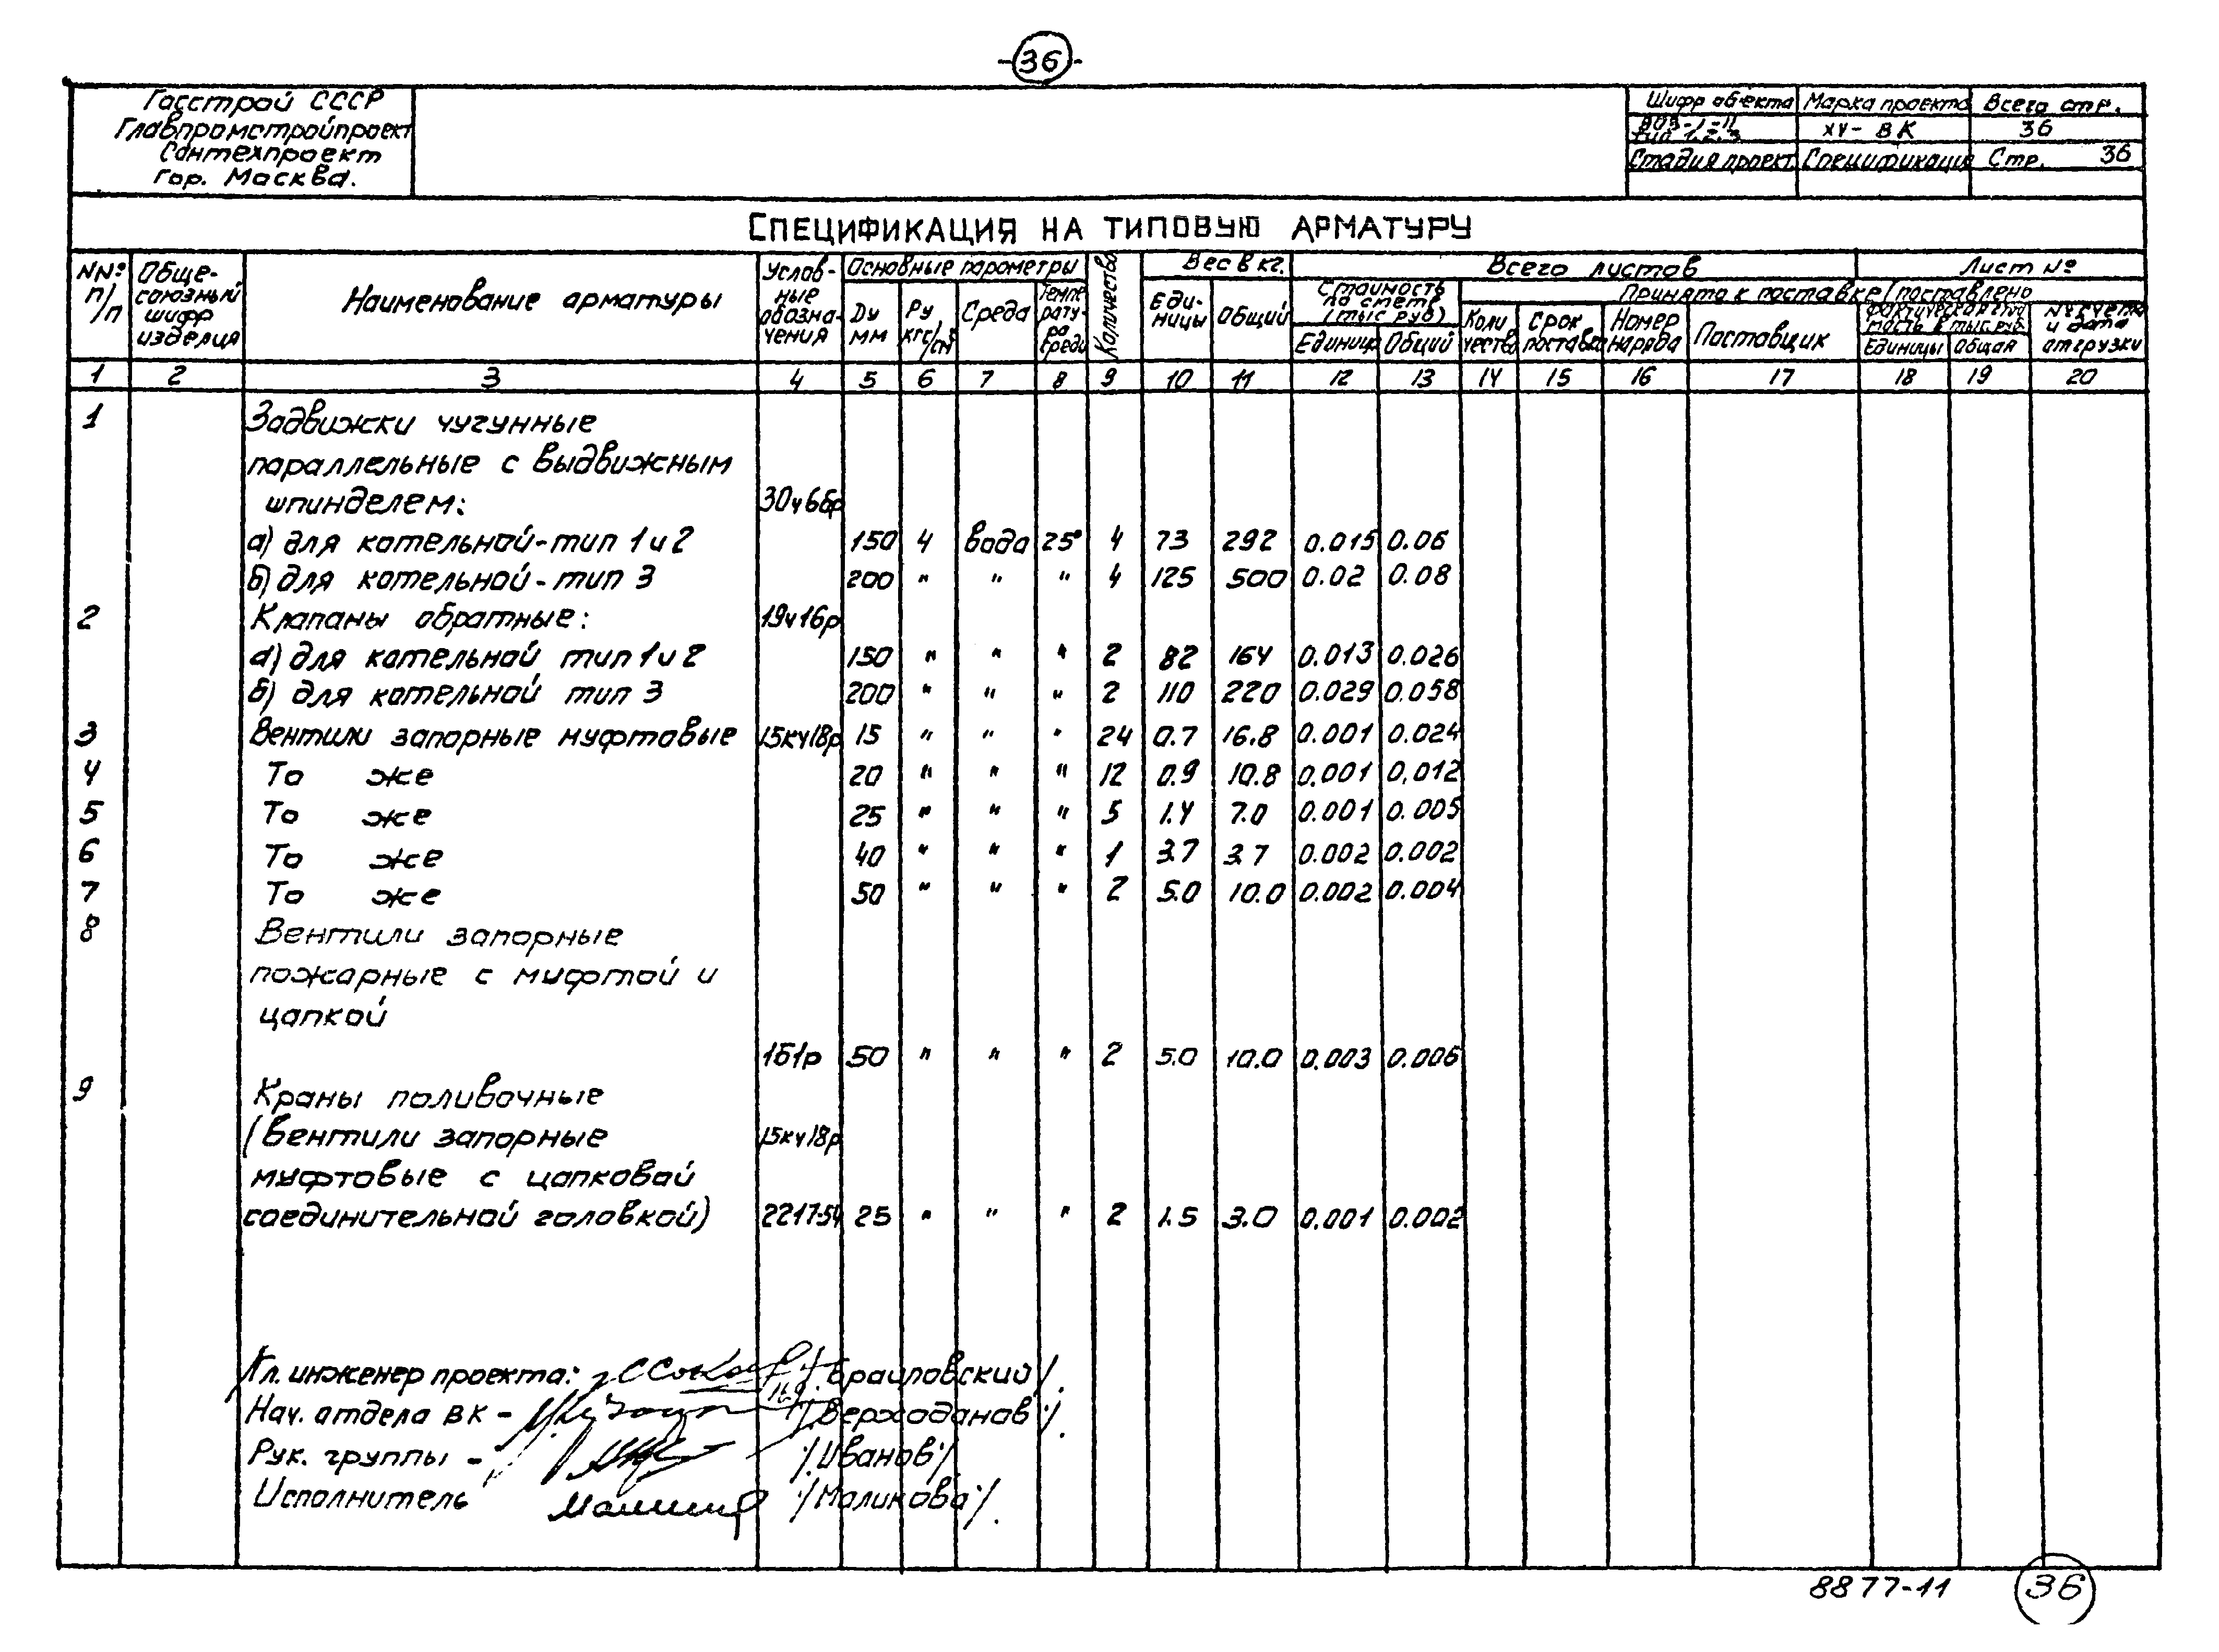 -36-
Госстрой СССР
Главпромстройпроект
Сантехпроект
гор. Москва.
Шифр объекта Марка проекта Всего стр.
XV-ВК 36
Стадия проект. Спецификация Стр. 36
СПЕЦИФИКАЦИЯ НА ТИПОВУЮ АРМАТУРУ
NN° п/п
Обще-союзный шифр изделия
Наименование арматуры
Услов-ные обозна-чения
Основные параметры
Ду мм
Ру кгс/см²
Среда
Темпе рату-ра среды
Количество
Вес в кг.
Еди-ницы
Общий
Всего листов
Лист №
Стоимость по смете (тыс руб)
Единиц Общий
Принято к поставке/поставлено
Коли чество
Срок поставки
Номер наряда
Поставщик
Фактическая стоимость в тыс. руб.
Единицы Общая
№ счета и дата отгрузки
1 2 3 4 5 6 7 8 9 10 11 12 13 14 15 16 17 18 19 20
1 Задвижки чугунные
параллельные с выдвижным
шпинделем: 30ч6бр
а) для котельной-тип 1 и 2 150 4 вода 25° 4 73 292 0.015 0.06
б) для котельной-тип 3 200 " " " 4 125 500 0.02 0.08
2 Клапаны обратные: 19ч16р
а) для котельной тип 1 и 2 150 " " " 2 82 164 0.013 0.026
б) для котельной тип 3 200 " " " 2 110 220 0.029 0.058
3 Вентили запорные муфтовые 15кч18р 15 " " " 24 0.7 16.8 0.001 0.024
4 То же 20 " " " 12 0.9 10.8 0.001 0.012
5 То же 25 " " " 5 1.4 7.0 0.001 0.005
6 То же 40 " " " 1 3.7 3.7 0.002 0.002
7 То же 50 " " " 2 5.0 10.0 0.002 0.004
8 Вентили запорные
пожарные с муфтой и
цапкой
1б1р 50 " " " 2 5.0 10.0 0.003 0.006
9 Краны поливочные
(Вентили запорные 15кч18р
муфтовые с цапковой
соединительной головкой) 2217-54 25 " " " 2 1.5 3.0 0.001 0.002
Гл. инженер проекта: /Браиловский/.
Нач. отдела ВК - /Верходанов/.
Рук. группы - /Иванов/.
Исполнитель /Маликова/.
8877-11 36